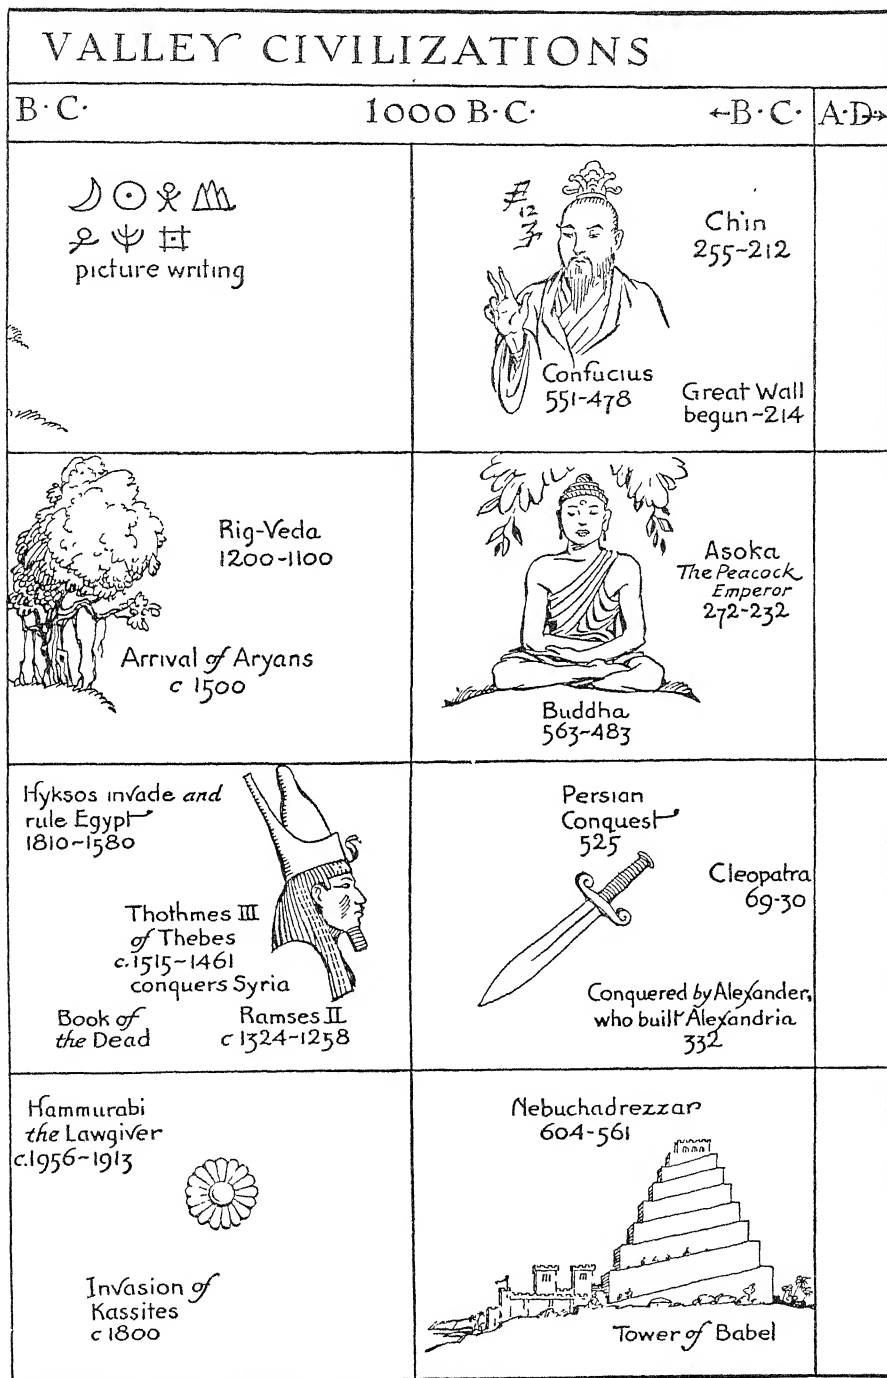 VALLEY CIVILIZATIONS
B·C·
1000 B·C·
←B·C·
A·D→
picture writing
12
Ch'in
255-212
Confucius
551-478
Great Wall
begun-214
Rig-Veda
1200-1100
Arrival of Aryans
c 1500
Asoka
The Peacock
Emperor
272-232
Buddha
563-483
Hyksos invade and
rule Egypt
1810-1580
Thothmes III
of Thebes
c.1515-1461
conquers Syria
Book of
the Dead
Ramses II
c 1324-1258
Persian
Conquest
525
Cleopatra
69-30
Conquered by Alexander,
who built Alexandria
332
Hammurabi
the Lawgiver
c.1956-1913
Invasion of
Kassites
c 1800
Nebuchadrezzar
604-561
Tower of Babel